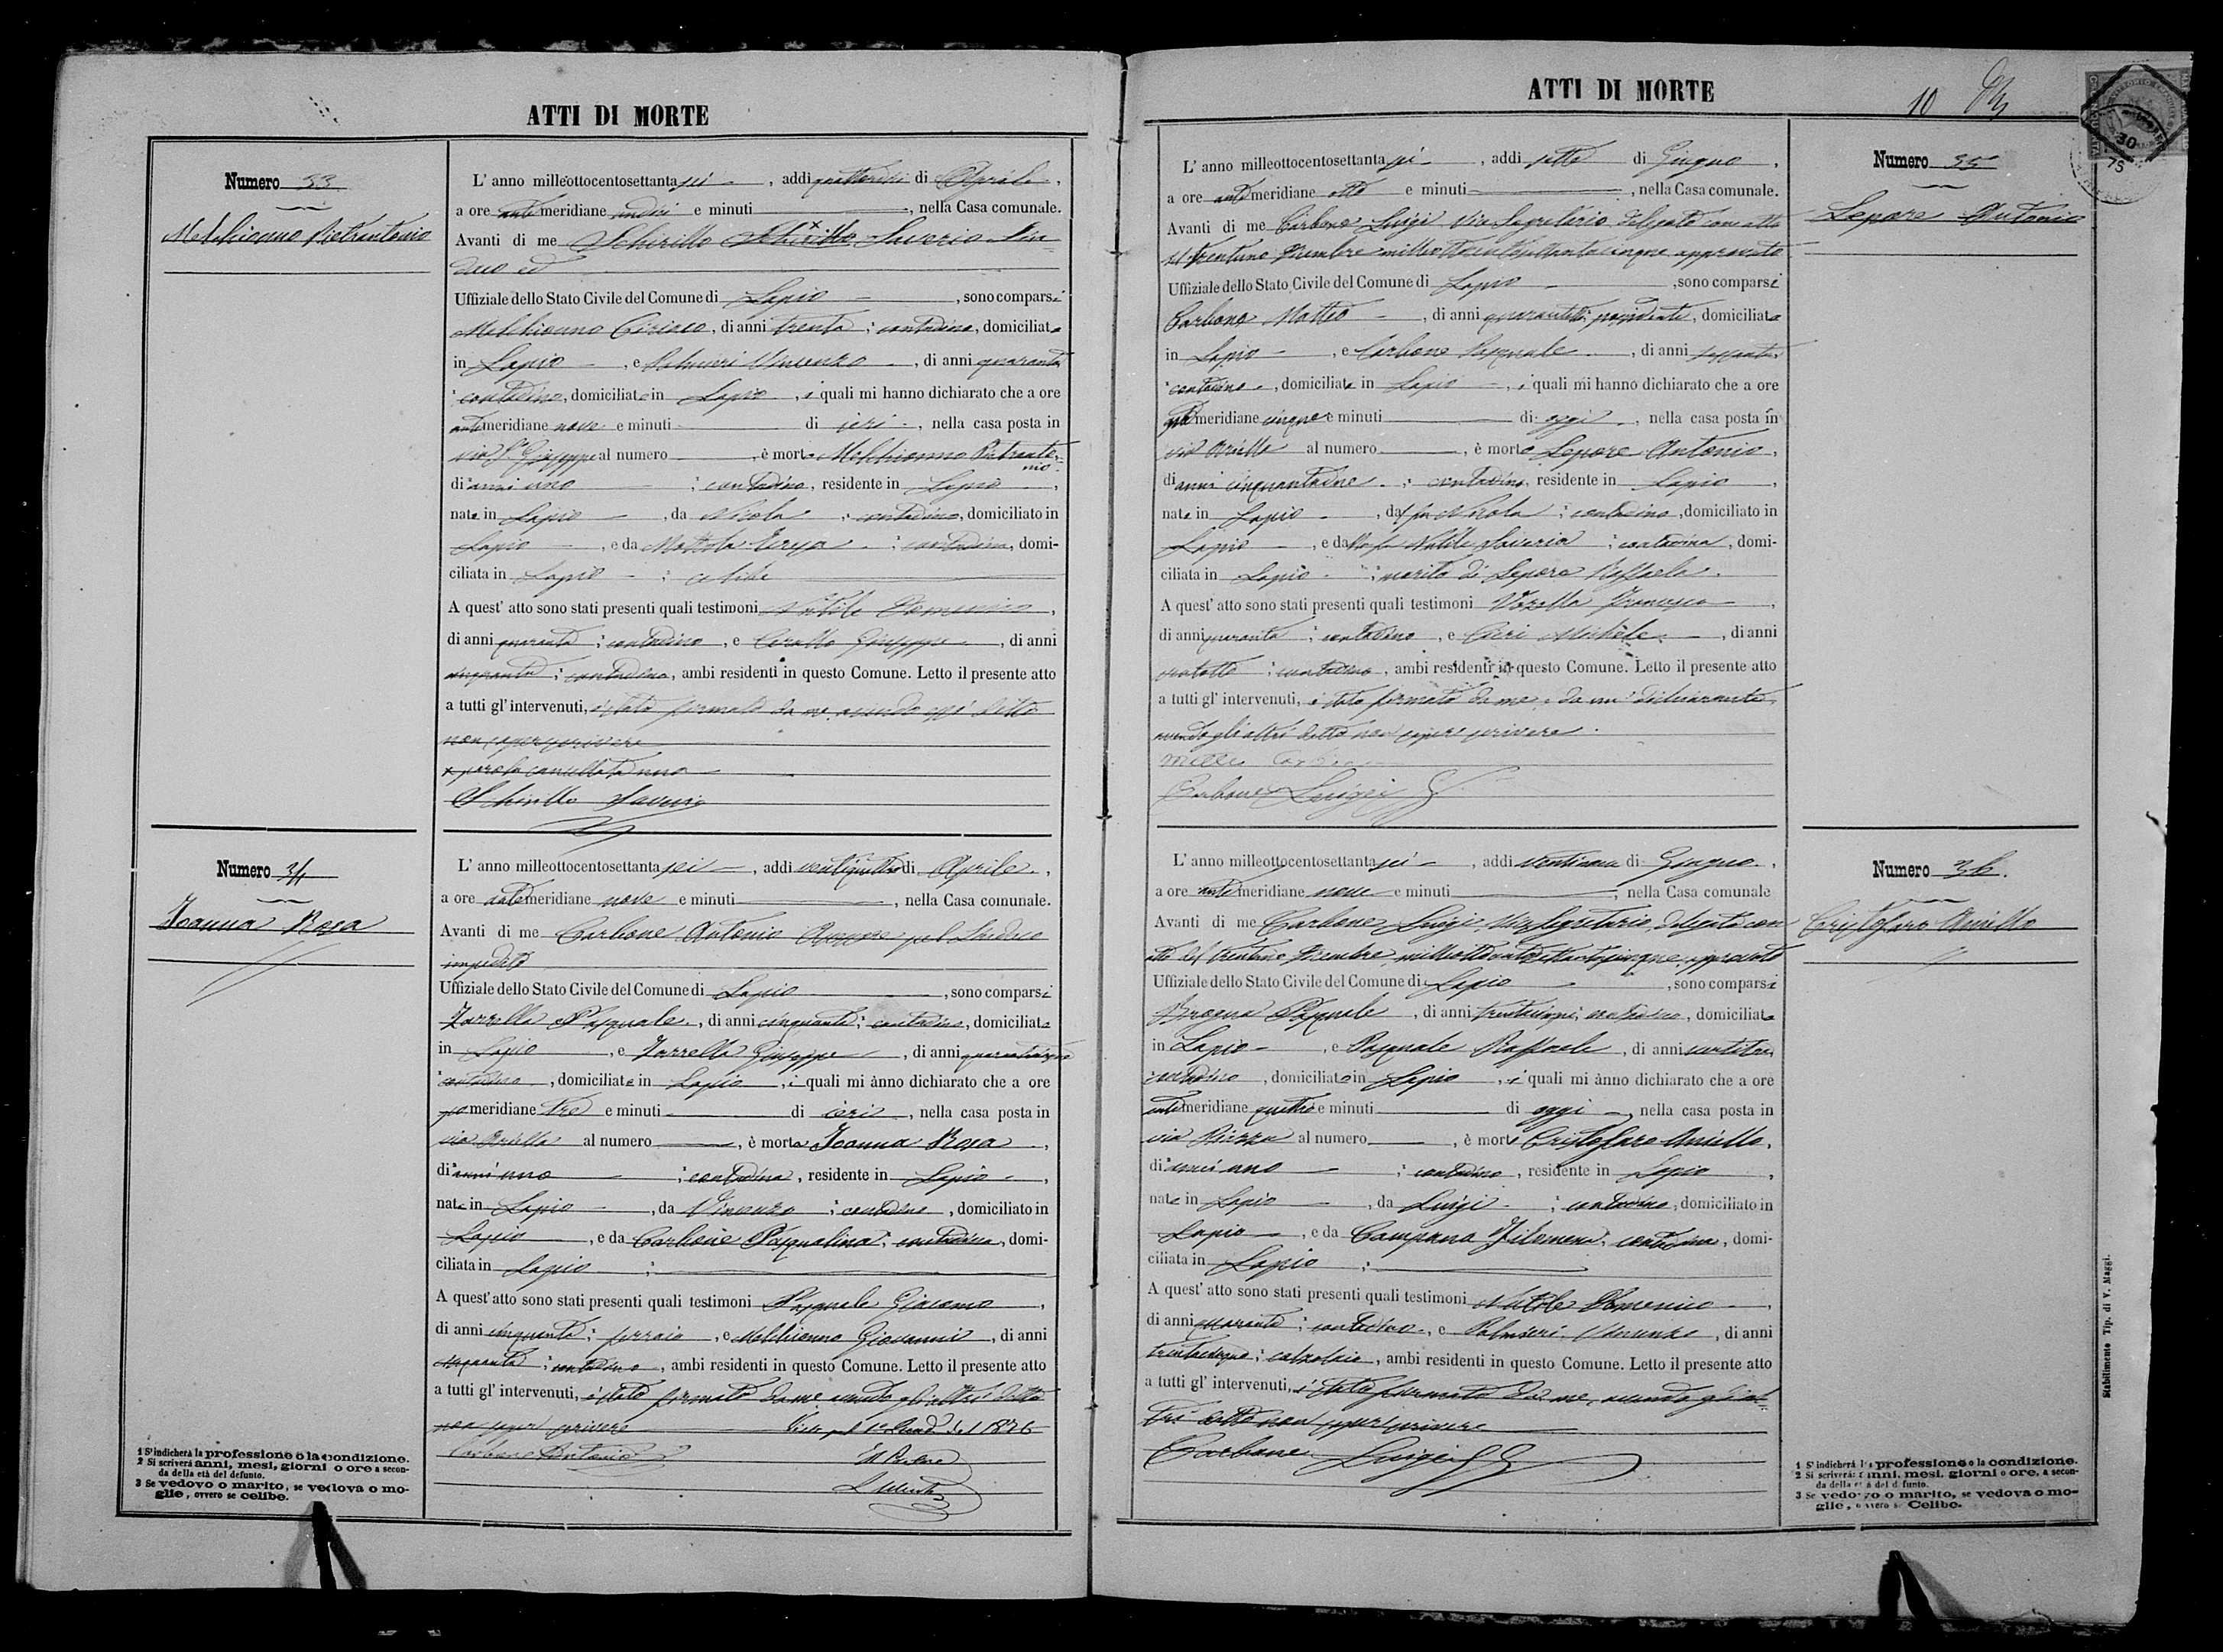 ATTI DI MORTE
Numero 33
Melchionno Pietrantonio
L' anno milleottocentosettanta sei, addi quattordici di Aprile,
a ore antemeridiane undici e minuti, nella Casa comunale.
Avanti di me Schirillo Saverio Sin
daco ed
Uffiziale dello Stato Civile del Comune di Lapio, sono comparsi
Melchionno Ciriaco, di anni trenta; contadino, domiciliato
in Lapio, e Palmieri Vincenzo, di anni quaranta
contadino, domiciliato in Lapio, i quali mi hanno dichiarato che a ore
antemeridiane nove e minuti di ieri, nella casa posta in
via S. Giuseppe al numero, è morto Melchionno Pietranto
nio
di anni uno; contadino, residente in Lapio,
nato in Lapio, da Nicola; contadino, domiciliato in
Lapio, e da Mottola; contadina, domi-
ciliata in Lapio; celibe
A quest' atto sono stati presenti quali testimoni Natile Domenico,
di anni quaranta; contadino, e Cirello Giuseppe, di anni
cinquanta; contadino, ambi residenti in questo Comune. Letto il presente atto
a tutti gl' intervenuti, è stato firmato da me avendo essi detto
non saper scrivere
x parola cancellata una
Schirillo Saverio
Numero 34
Joanna Rosa
L' anno milleottocentosettanta sei, addi ventiquattro di Aprile,
a ore antemeridiane nove e minuti, nella Casa comunale.
Avanti di me Carbone Antonio Assessore pel Sindaco
impedito
Uffiziale dello Stato Civile del Comune di Lapio, sono comparsi
Zarrella Pasquale, di anni cinquanta; contadino, domiciliato
in Lapio, e Zarrella Giuseppe, di anni quarantacinque
contadino, domiciliato in Lapio, i quali mi ànno dichiarato che a ore
pomeridiane tre e minuti di ieri, nella casa posta in
via Ariella al numero, è morta Joanna Rosa,
di anni uno; contadina, residente in Lapio,
nata in Lapio, da Vincenzo; contadino, domiciliato in
Lapio, e da Carbone Pasqualina; contadina, domi-
ciliata in Lapio;
A quest' atto sono stati presenti quali testimoni Pasquale Giacomo,
di anni cinquanta; ferraio, e Melchionno Giovanni, di anni
contadino, ambi residenti in questo Comune. Letto il presente atto
a tutti gl' intervenuti, è stato firmato da me avendo gli altri detto
non saper scrivere
Carbone Antonio
1 S' indicherà la professione o la condizione.
2 Si scriverà anni, mesi, giorni o ore a secon-
da della età del defunto.
3 Se vedovo o marito, se vedova o mo-
glie, ovvero se celibe.
ATTI DI MORTE
10
30
75
Numero 35
Lepore Antonio
L' anno milleottocentosettanta sei, addi sette di Giugno,
a ore antemeridiane otto e minuti, nella Casa comunale.
Avanti di me Carbone Luigi Vice Segretario delegato con atto
del trentuno Dicembre milleottocentosettantacinque approvato
Uffiziale dello Stato Civile del Comune di Lapio, sono comparsi
Carbone Matteo, di anni possidente, domiciliato
in Lapio, e Carbone Pasquale, di anni sessanta
contadino, domiciliato in Lapio, i quali mi hanno dichiarato che a ore
antemeridiane cinque e minuti di oggi, nella casa posta in
via Ariella al numero, è morto Lepore Antonio,
di anni cinquantadue; contadino, residente in Lapio,
nato in Lapio, dal fu Nicola; contadino, domiciliato in
Lapio, e dalla fu Natile Saveria; contadina, domi-
ciliata in Lapio; marito di Lepore Raffaela.
A quest' atto sono stati presenti quali testimoni Vozella Francesco,
di anni quaranta; contadino, e Cieri Michele, di anni
contadino, ambi residenti in questo Comune. Letto il presente atto
a tutti gl' intervenuti, è stato firmato da me e da un dichiarante,
avendo gli altri detto non sapere scrivere.
Carbone Luigi
Numero 36.
Cristofaro Aniello
L' anno milleottocentosettanta sei, addi ventinove di Giugno,
a ore antemeridiane nove e minuti, nella Casa comunale
Avanti di me Carbone Luigi Vice Segretario, delegato con
atto del trentuno Dicembre milleottocentosettantacinque, approvato
Uffiziale dello Stato Civile del Comune di Lapio, sono comparsi
Brogna Pasquale, di anni trentacinque; contadino, domiciliato
in Lapio, e Pasquale Raffaele, di anni ventitre,
contadino, domiciliato in Lapio, i quali mi ànno dichiarato che a ore
antemeridiane quattro e minuti di oggi, nella casa posta in
via Piazza al numero, è morto Cristofaro Aniello,
di anni uno; contadino, residente in Lapio,
nato in Lapio, da Luigi; contadino, domiciliato in
Lapio, e da Campana Filomena; contadina, domi-
ciliata in Lapio;
A quest' atto sono stati presenti quali testimoni Natile Domenico,
di anni quaranta; contadino, e Palmieri Vincenzo, di anni
trentacinque; calzolaio, ambi residenti in questo Comune. Letto il presente atto
a tutti gl' intervenuti, è stato firmato da me, avendo gli al
tri detto non saper scrivere
Carbone Luigi
1 S' indicherà la professione o la condizione.
2 Si scriverà: anni, mesi, giorni o ore, a secon-
da della età del defunto.
3 Se vedovo o marito, se vedova o mo-
glie, ovvero se Celibe.
Stabilimento Tip. di V. Maggi.